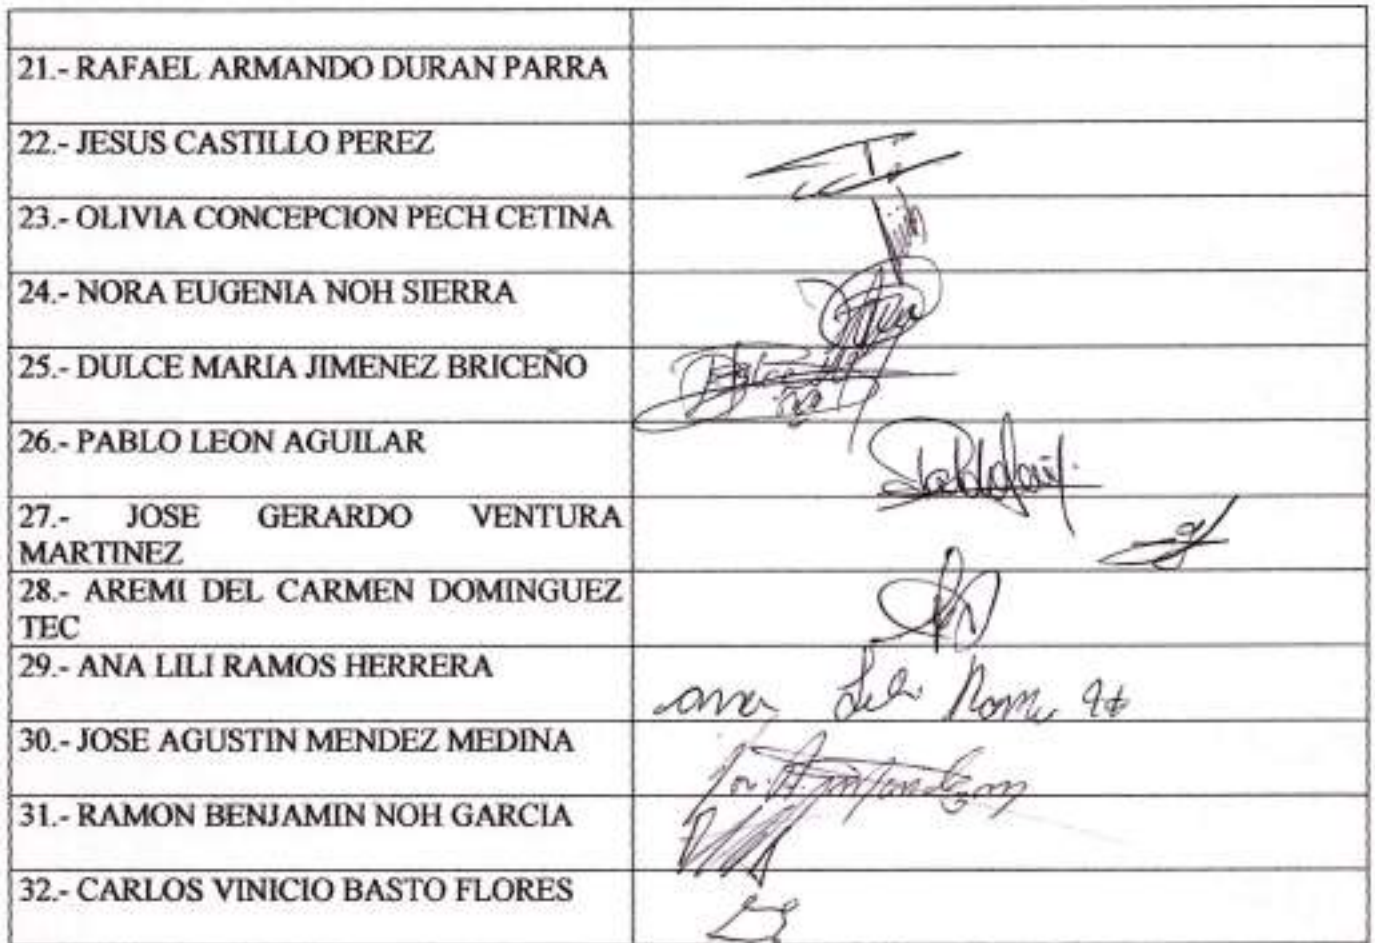 21.- RAFAEL ARMANDO DURAN PARRA
22.- JESUS CASTILLO PEREZ
23.- OLIVIA CONCEPCION PECH CETINA
24.- NORA EUGENIA NOH SIERRA
25.- DULCE MARIA JIMENEZ BRICEÑO
26.- PABLO LEON AGUILAR
27.- JOSE GERARDO VENTURA
MARTINEZ
28.- AREMI DEL CARMEN DOMINGUEZ
TEC
29.- ANA LILI RAMOS HERRERA
ana Lili
30.- JOSE AGUSTIN MENDEZ MEDINA
31.- RAMON BENJAMIN NOH GARCIA
32.- CARLOS VINICIO BASTO FLORES